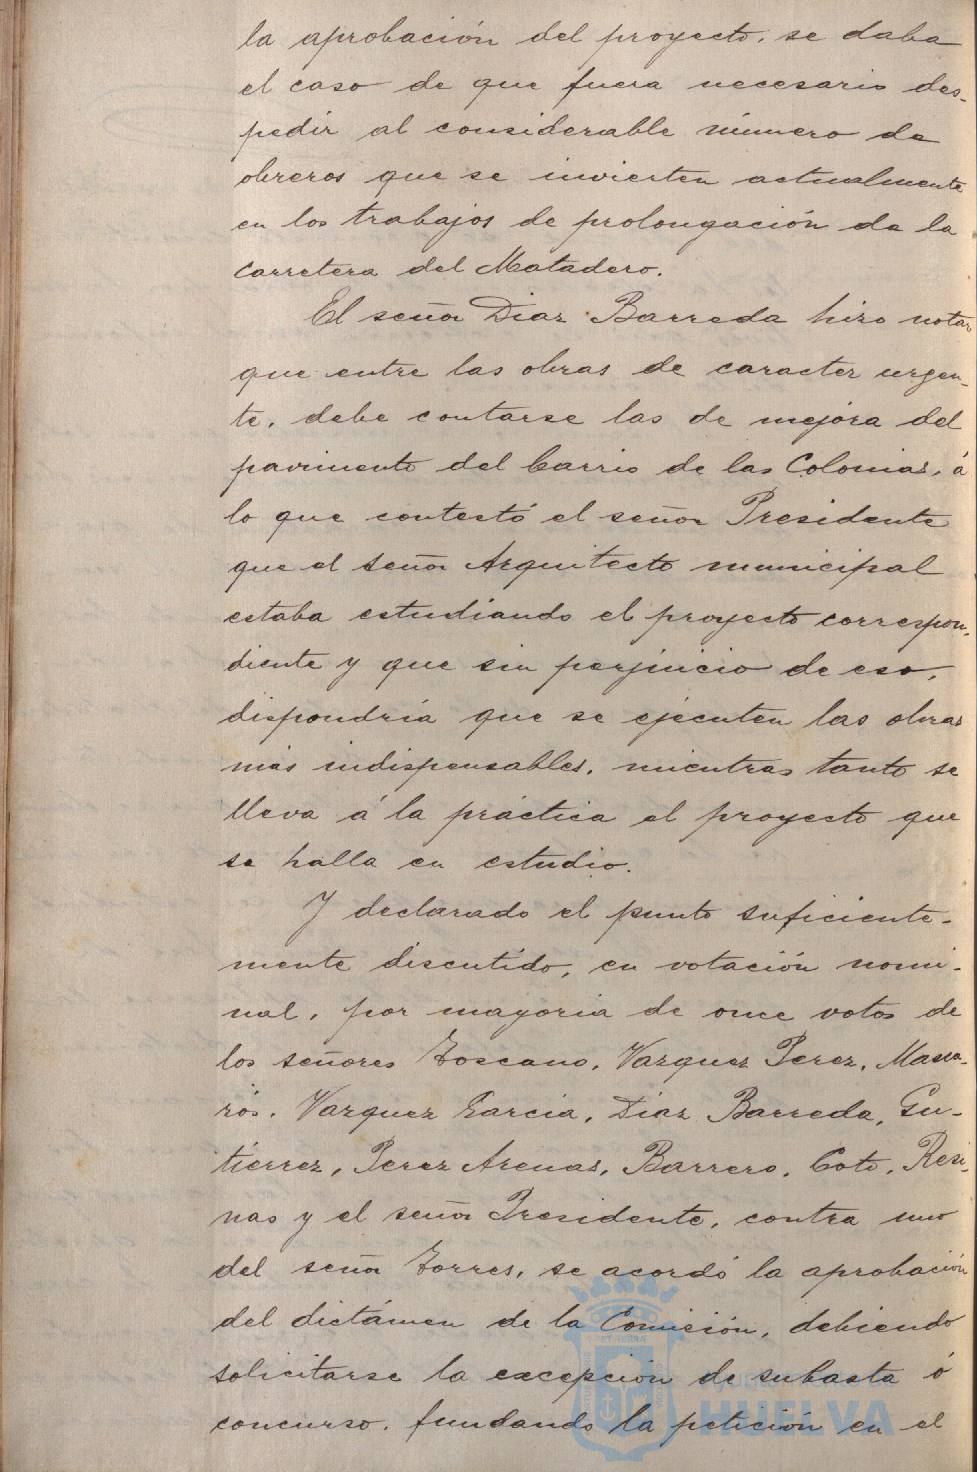 la aprobación del proyecto, se daba
el caso de que fuera necesario des-
pedir al considerable número de
obreros que se invierten actualmente
en los trabajos de prolongación de la
carretera del Matadero.
El señor Diaz Barreda hizo notar
que entre las obras de caracter urgen-
te, debe contarse las de mejora del
pavimento del barrio de las Colonias, á
lo que contestó el señor Presidente
que el señor Arquitecto municipal
estaba estudiando el proyecto correspon-
diente y que sin perjuicio de eso,
dispondría que se ejecuten las obras
más indispensables, mientras tanto se
lleva á la práctica el proyecto que
se halla en estudio.
Y declarado el punto suficiente-
mente discutido, en votación nomi-
nal, por mayoria de once votos de
los señores Toscano, Vazquez Perez, Maña-
rós, Vazquez Garcia, Diaz Barreda, Gu-
tierrez, Perez Arenas, Barrero, Coto, Resi-
nas y el señor Presidente, contra uno
del señor Torres, se acordó la aprobación
del dictámen de la Comisión, debiendo
solicitarse la excepción de subasta ó
concurso, fundando la petición en el
HUELVA